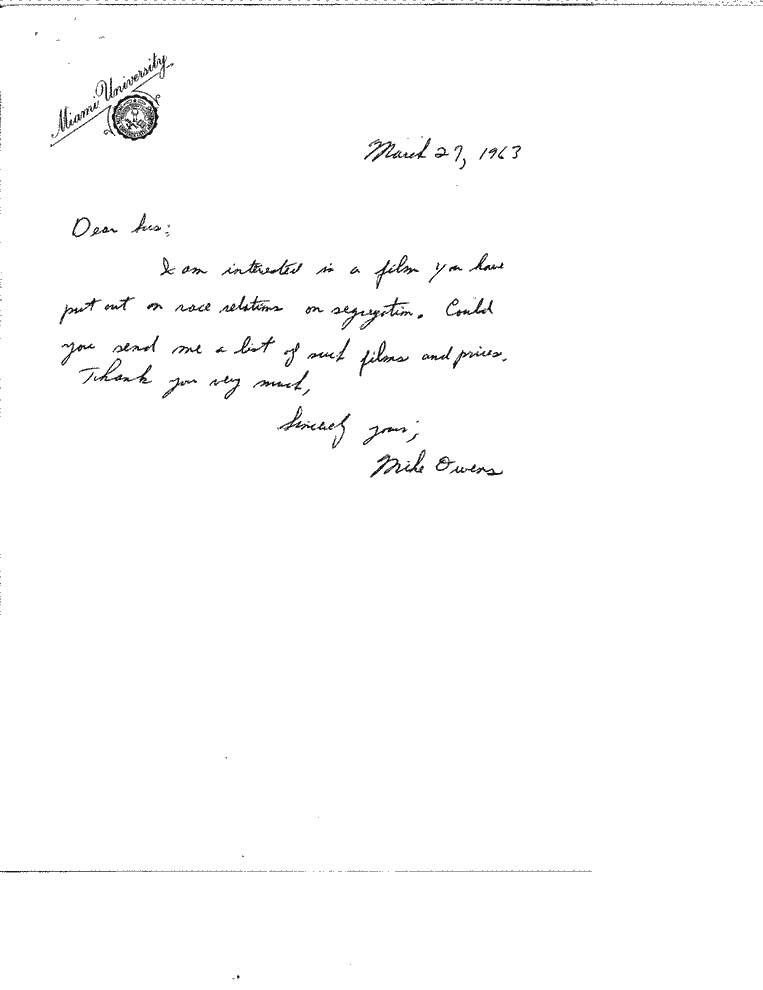 Miami University
March 27, 1963
Dear Sirs;
I am interested in a film you have
put out on race relations or segregation. Could
you send me a list of such films and prices.
Thank you very much,
Sincerely yours;
Mike Owens